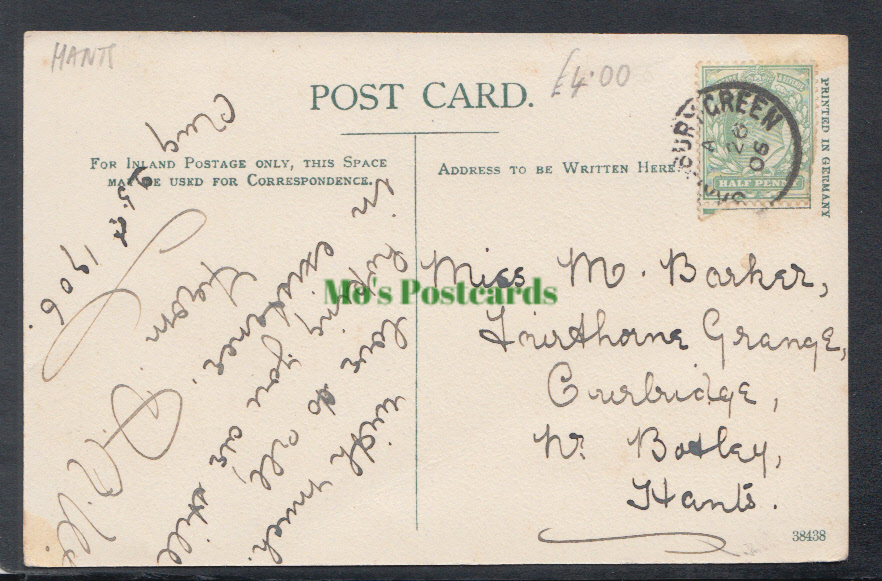 HANTS
£4.00
POST CARD.
FOR INLAND POSTAGE ONLY, THIS SPACE
MAY BE USED FOR CORRESPONDENCE.
ADDRESS TO BE WRITTEN HERE
PRINTED IN GERMANY
GREEN
A
26
06
HALF PENNY
Aug
25th 1906
with much
love to all,
hoping you are still
in existence.
from
Miss M. Barker,
Fairthorne Grange,
Curbridge,
Nr. Botley,
Hants.
Mo's Postcards
38438